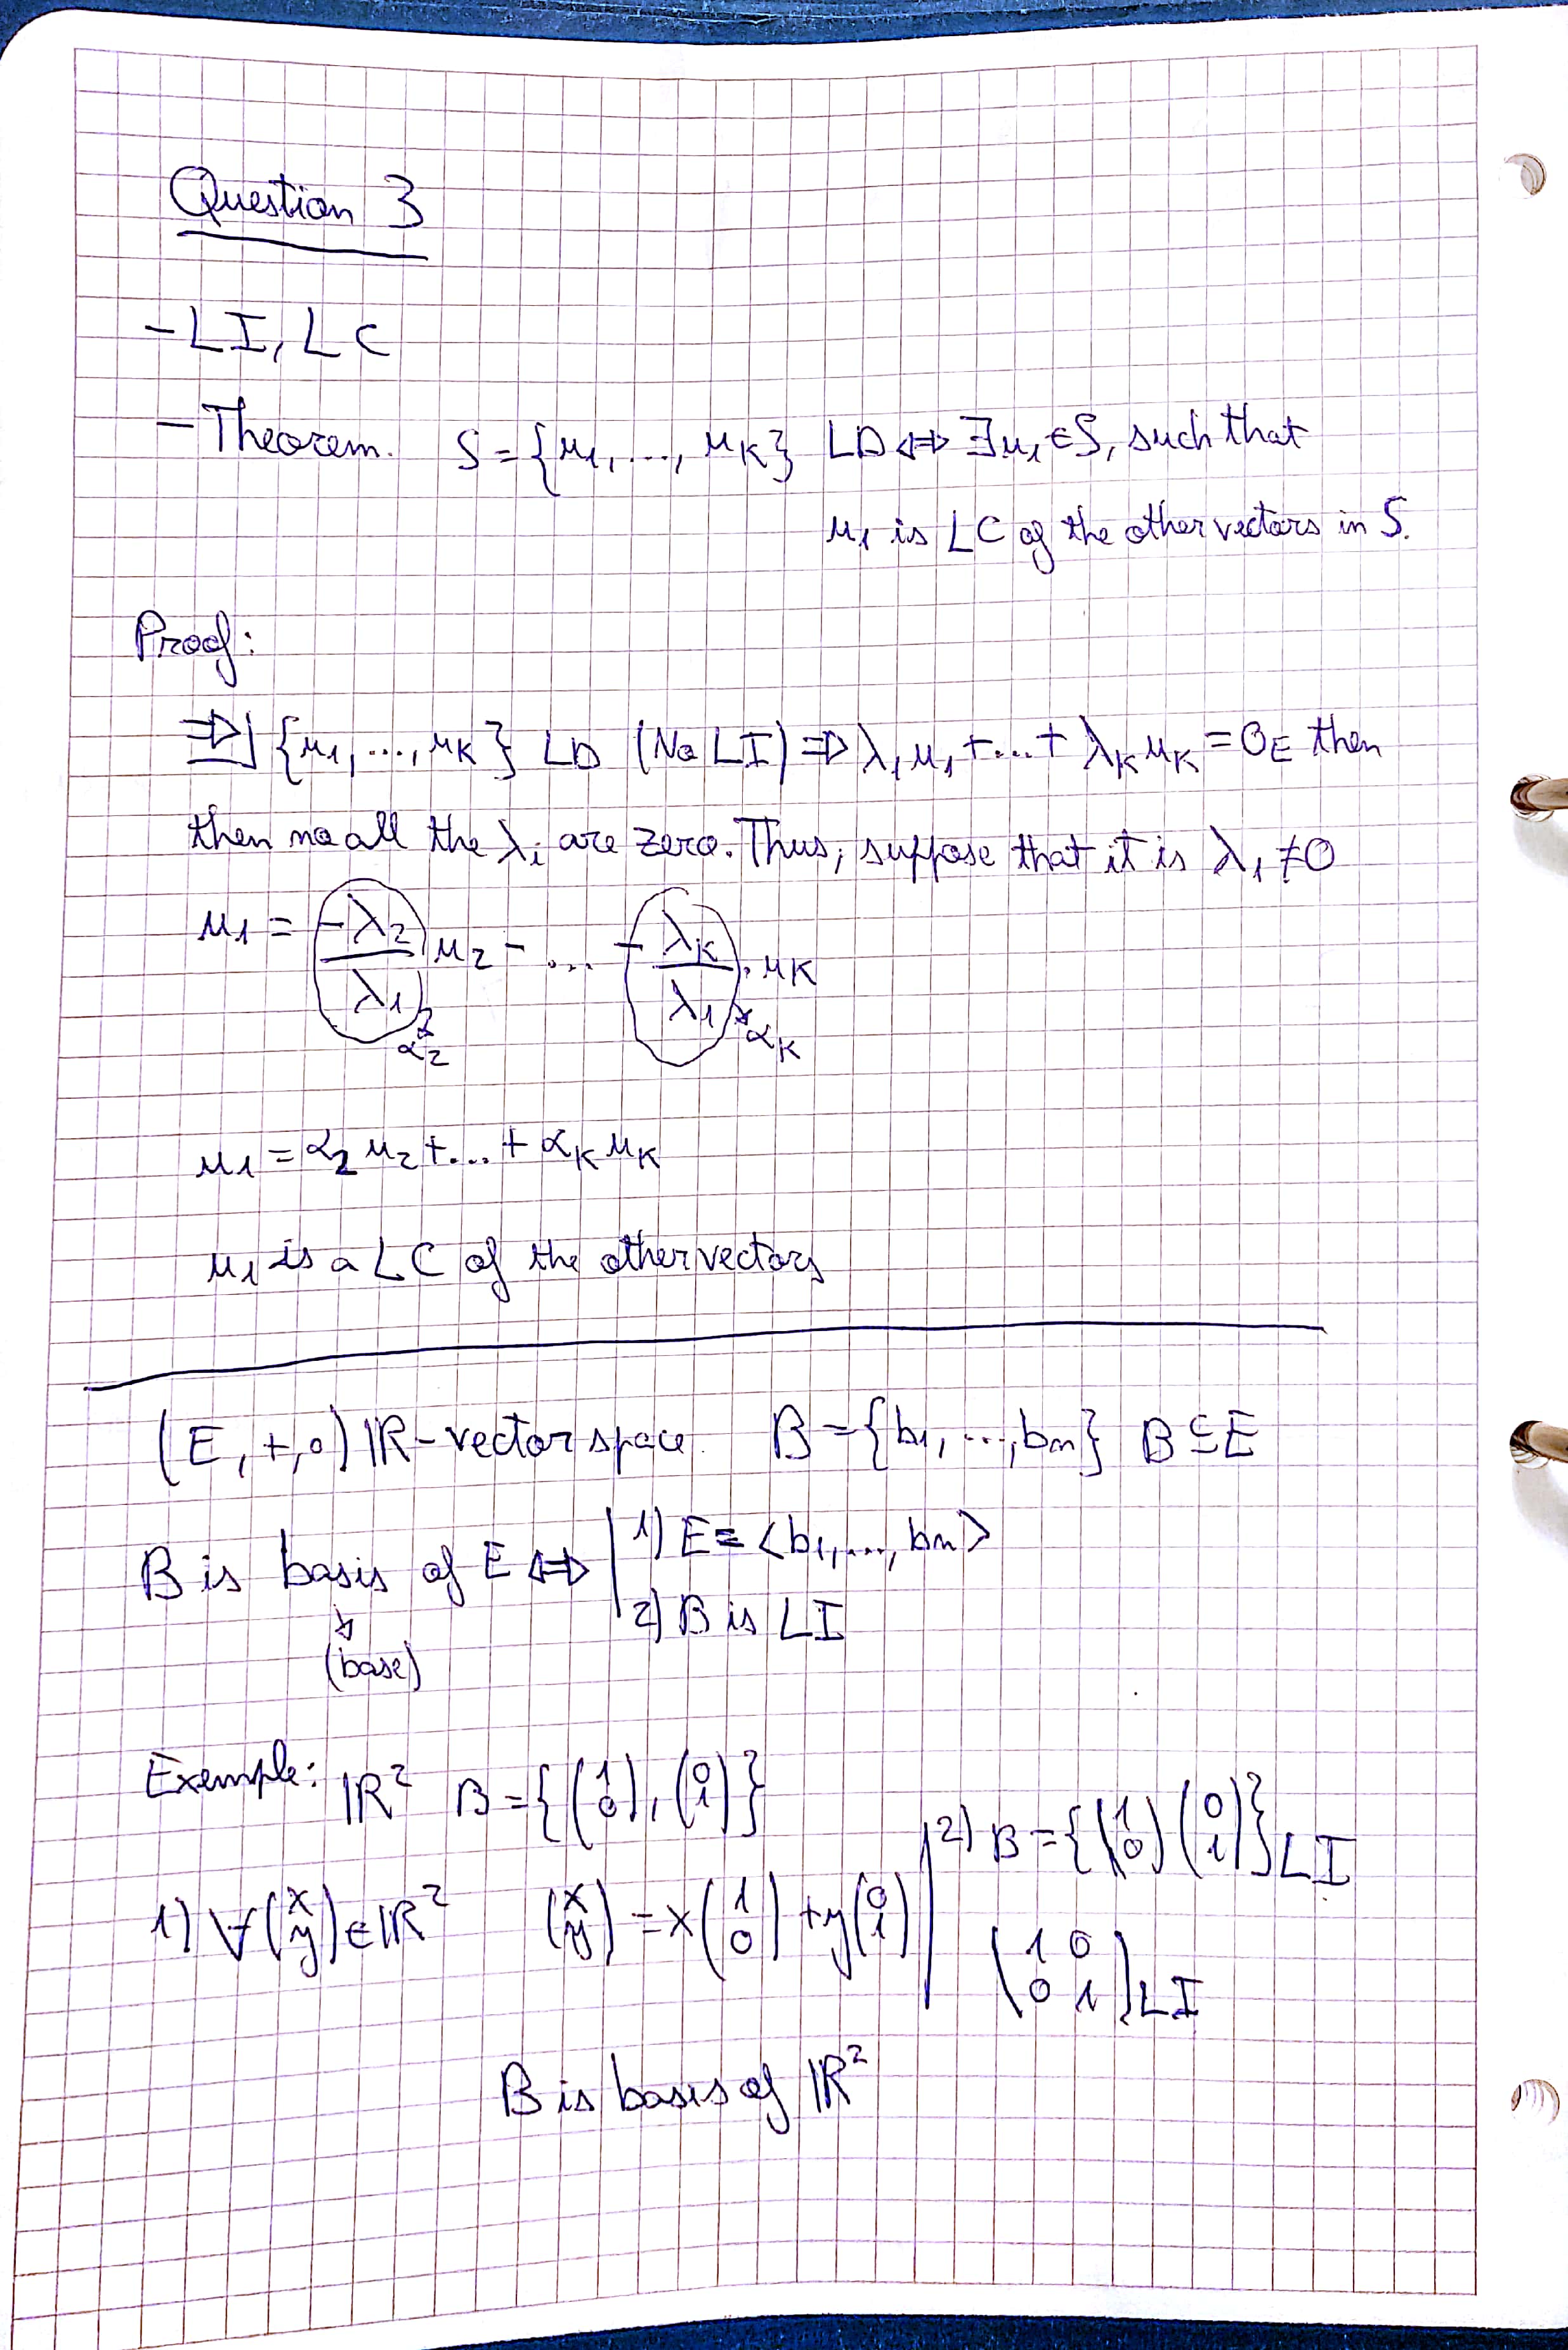 Question 3
- LI, LC
- Theorem. S = {u1, ..., uK} LD ⇔ ∃u1 ∈ S, such that
u1 is LC of the other vectors in S.
Proof:
⇒| {u1, ..., uK} LD (No LI) ⇒ λ1 u1 + ... + λK uK = 0E then
then no all the λi are zero. Thus, suppose that it is λ1 ≠ 0
u1 = -λ2/λ1 u2 - ... - λK/λ1 · uK
α2 αK
u1 = α2 u2 + ... + αK uK
u1 is a LC of the other vectors
(E, +, ∘) ℝ-vector space. B = {b1, ..., bn} B ⊆ E
B is basis of E ⇔ | 1) E = <b1, ..., bn>
2) B is LI
(base)
Exemple: ℝ² B = {(1 0), (0 1)}
1) ∀(x y) ∈ ℝ² (x y) = x(1 0) + y(0 1)
2) B = {(1 0) (0 1)} LI
(1 0
0 1) LI
B is basis of ℝ²